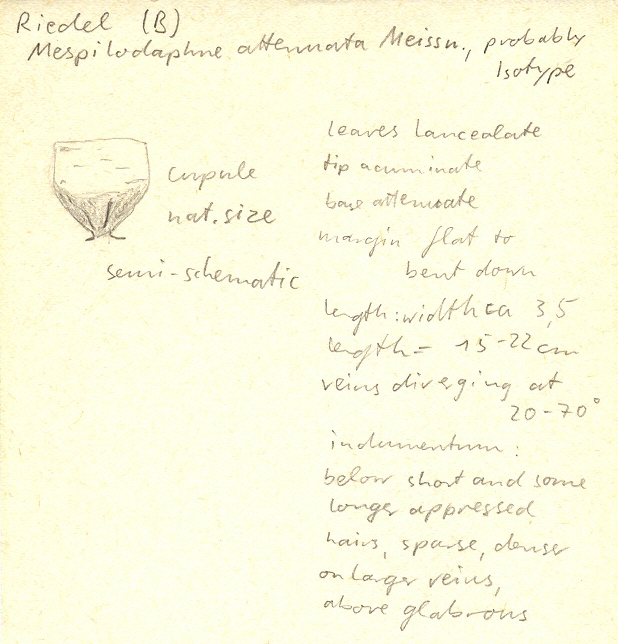 Riedel (B)
Mespilodaphne attenuata Meissn., probably
Isotype
cupule
nat. size
semi-schematic
leaves lancealate
tip acuminate
base attenuate
margin flat to
bent down
length:width ca 3,5
length = 15-22 cm
veins diverging at
20-70°
indumentum:
below short and some
longer appressed
hairs, sparse, denser
on larger veins,
above glabrous